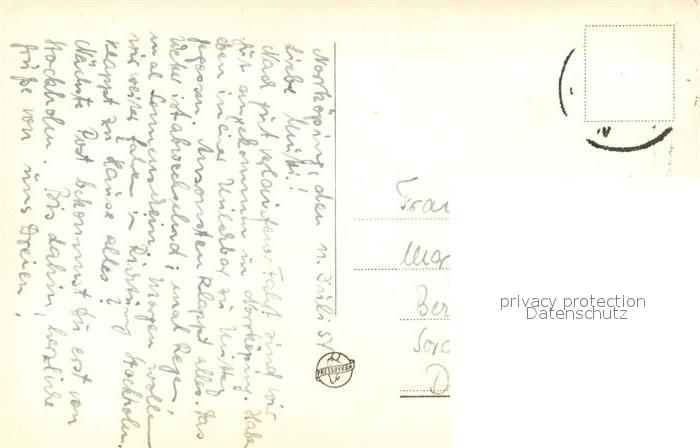 Norrköping, den 11. Juli 51
Liebe Mutti!
Nach gut verlaufener Fahrt sind wir
hier angekommen in Norrköping. Haben
eben in einer Milchbar zu Mittag
gegessen. Ansonsten klappt alles. Das
Wetter ist abwechselnd; mal Regen,
mal Sonnenschein. Morgen wollen
wir weiter fahren in Richtung Stockholm.
Klappt zu Hause alles?
Nächste Post bekommst Du erst von
Stockholm. Bis dahin, herzliche
Grüße von uns Dreien!
Frau
Mar
Ber
D
PRESSBYRÅN
privacy protection
Datenschutz